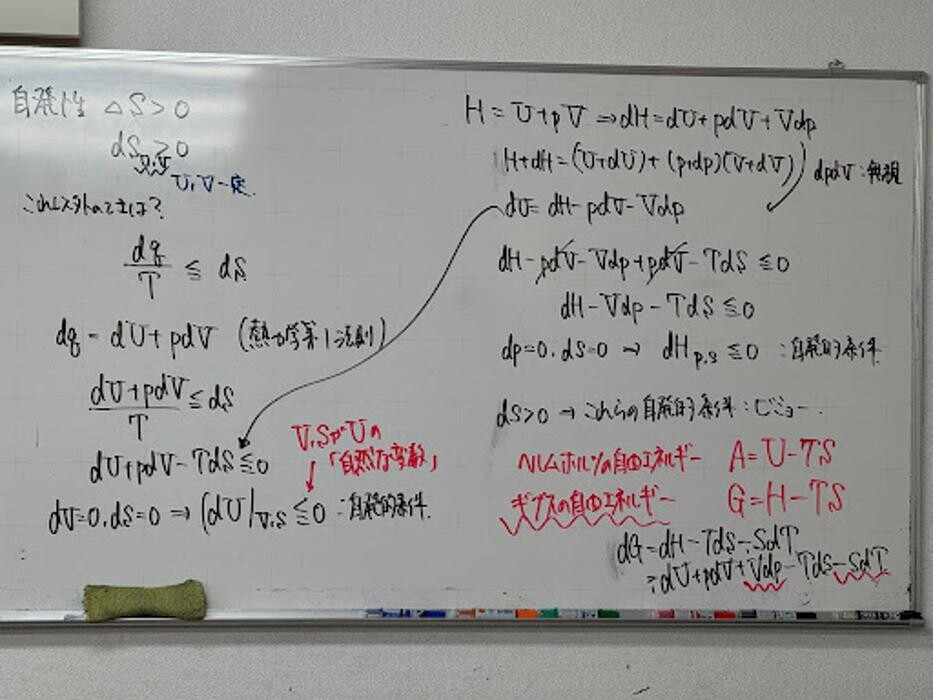 自発性 △S>0
dS_{U,V}≧0
U,V一定.
これ以外のときは?
dq/T ≦ dS
dq = dU+pdV (熱力学第1法則)
(dU+pdV)/T ≦ dS
dU+pdV-TdS≦0
V,SがUの
「自然な変数」
dV=0.dS=0 → (dU)_{V,S} ≦0 :自発的条件.
H=U+pV ⇒dH=dU+pdV+Vdp
H+dH=(U+dU)+(p+dp)(V+dV)
dpdV:無視
dU=dH-pdV-Vdp
dH-pdV-Vdp+pdV-TdS≦0
dH-Vdp-TdS≦0
dp=0.dS=0 → dH_{p,S}≦0 :自発的条件.
dS>0 → これらの自発的条件:ビミョー.
ヘルムホルツの自由エネルギー A=U-TS
ギブスの自由エネルギー G=H-TS
dG=dH-TdS-SdT
=dU+pdV+Vdp-TdS-SdT